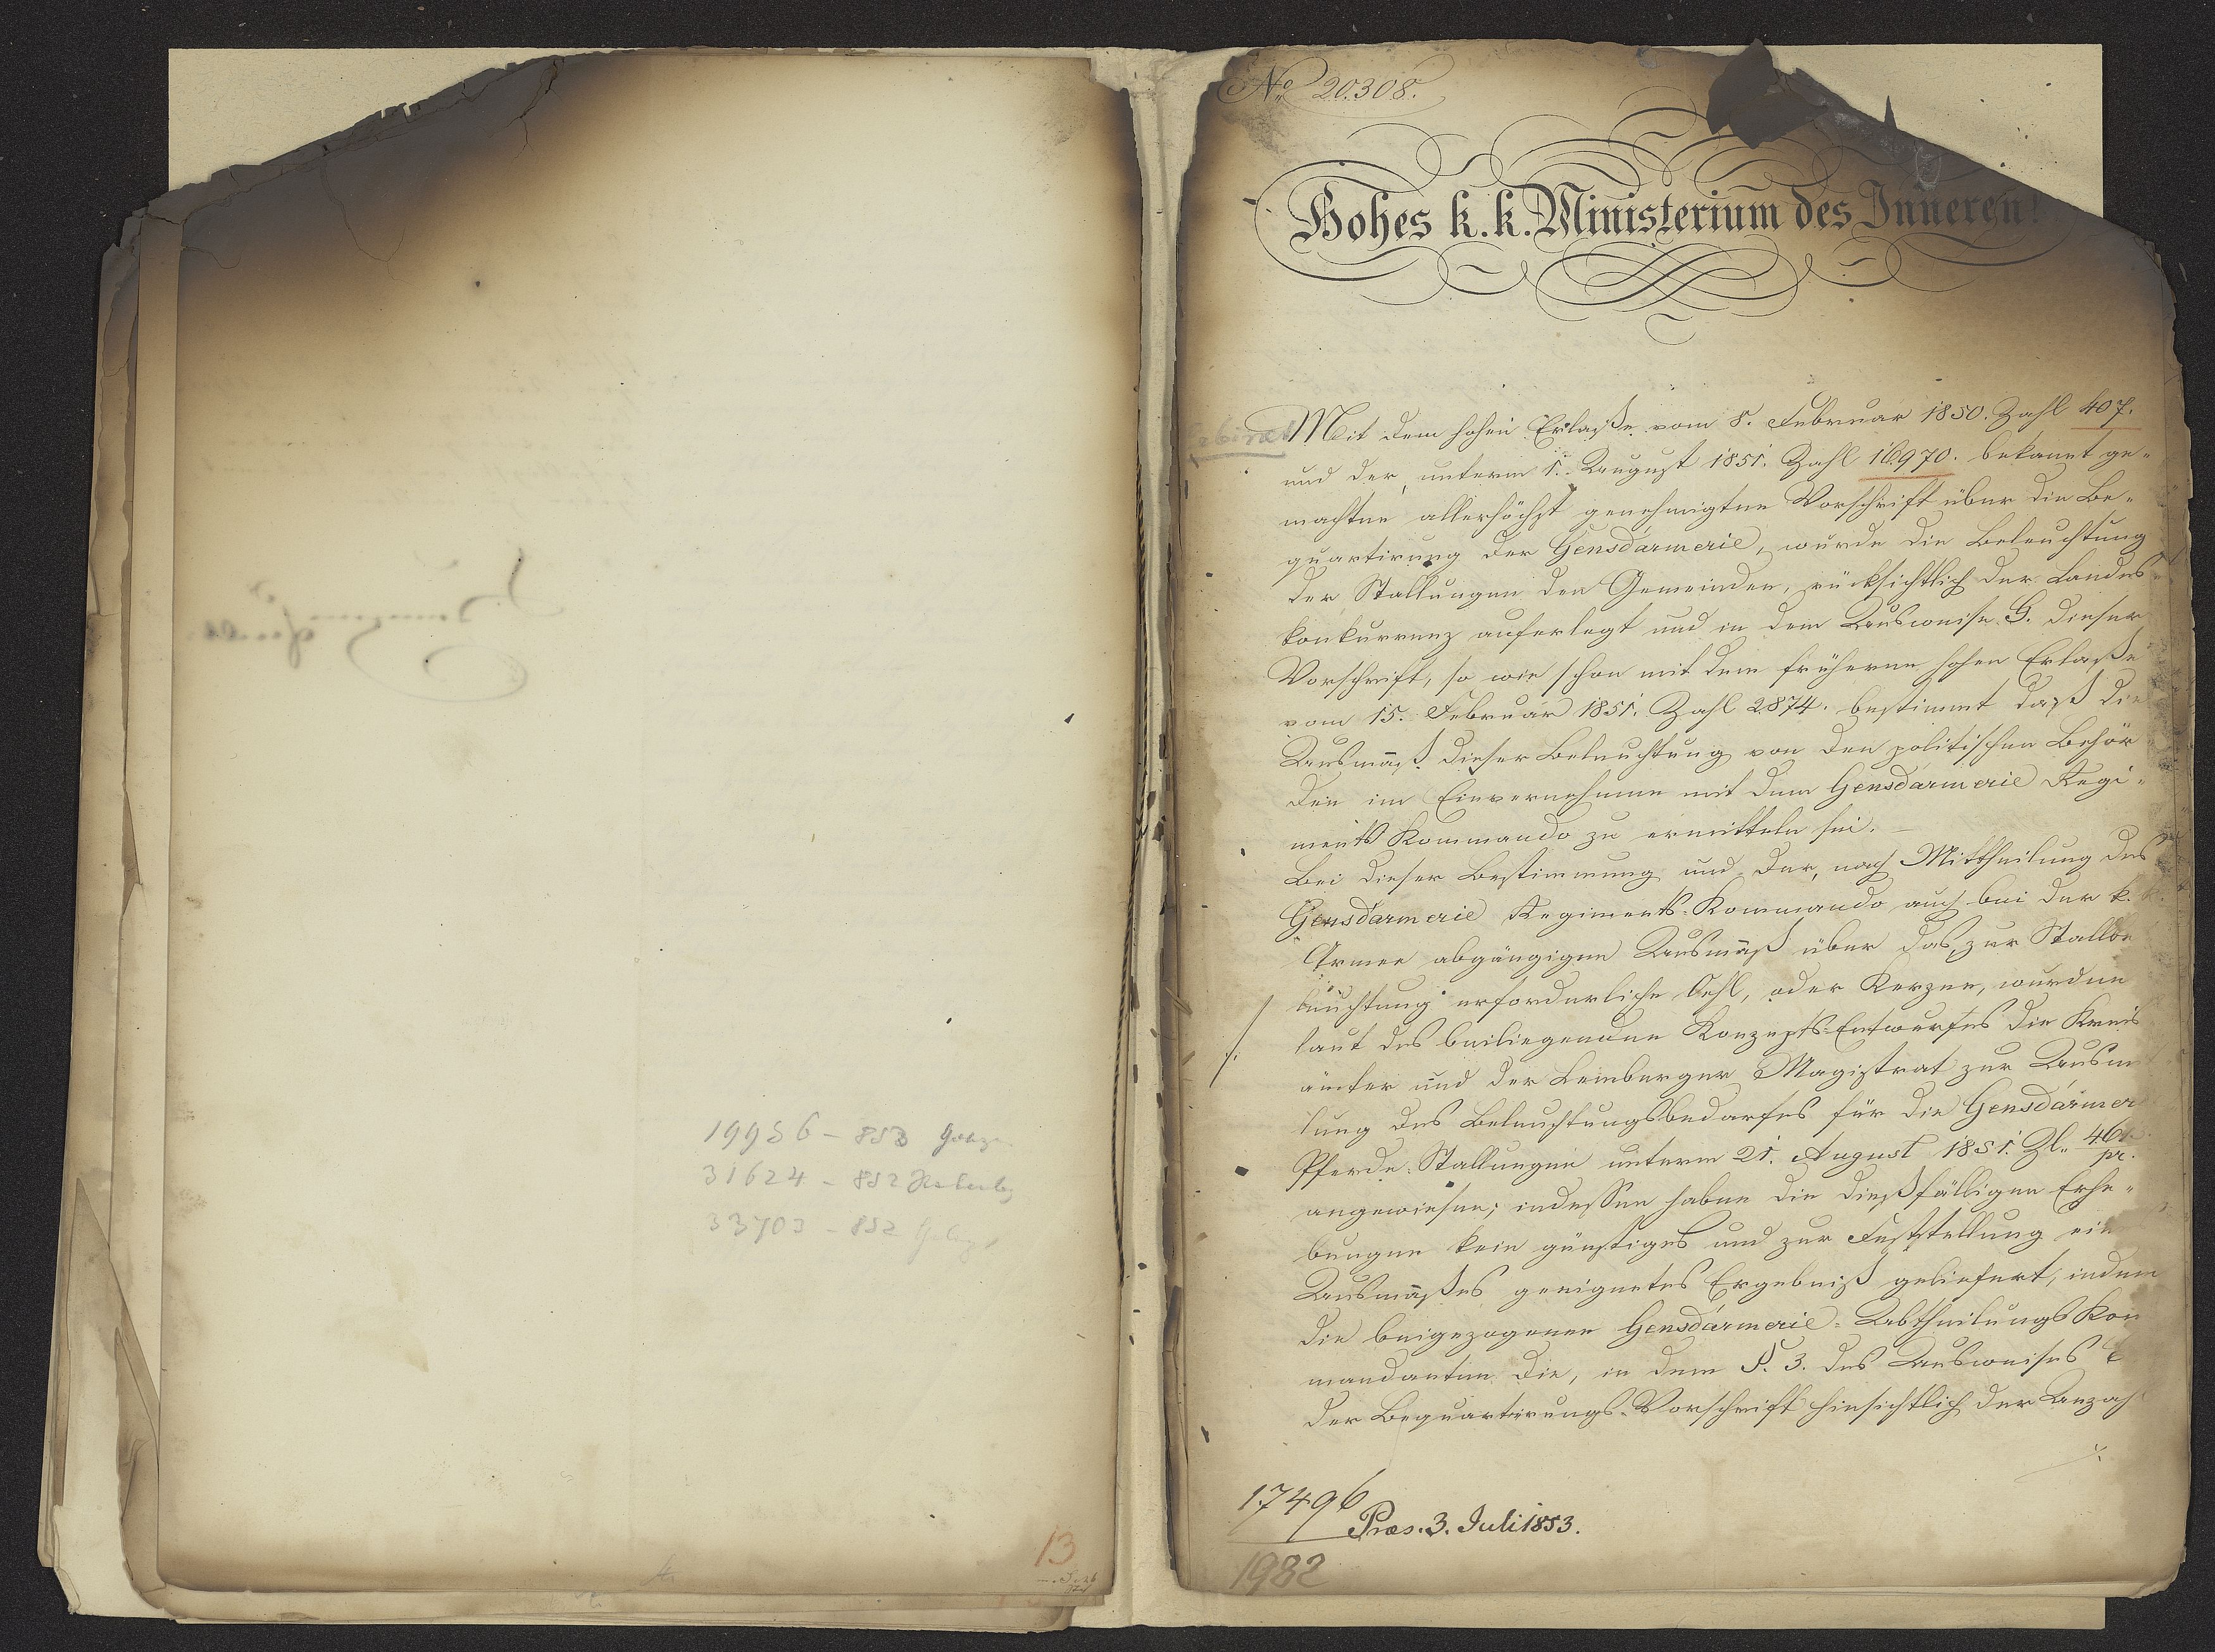 19956 – 853
31624 – 852
33703 – 852
13
No 20.308.
Hohes k. k. Ministerium des Inneren!
Mit dem hohen Erlaße vom 8. Februar 1850. Zahl 407.
und der, unterm 1. August 1851. Zahl 16970. bekannt ge-
machten allerhöchst genehmigten Vorschrift über die Be-
quartirung der Gensdarmerie, wurde die Beleuchtung
der Stallungen den Gemeinden, rücksichtlich der Landes-
konkurrenz auferlegt und in dem Ausweise G. dieser
Vorschrift, so wie schon mit dem früheren hohen Erlaße
vom 15. Februar 1851. Zahl 2874. bestimmt daß die
Ausmaß dieser Beleuchtung von den politischen Behör-
den im Einvernehmen mit dem Gensdarmerie Regi-
ments Kommando zu ermitteln sei. –
Bei dieser Bestimmung und der, nach Mittheilung des
Gensdarmerie Regiments-Kommando auch bei der k. k.
Armee abgängigen Ausmaß über das, zur Stallbe
leuchtung erforderliche Oehl, oder Kerzen, wurden
laut des beiliegenden Konzepts-Entwurfes die Kreis
ämter und der Lemberger Magistrat zur Ausmit
lung des Beleuchtungsbedarfes für die Gensdarmer
Pferde-Stallungen unterm 21. August 1851. Zl. pr.
angewiesen; indessen haben die dießfälligen Erhe-
bungen kein günstiges und zur Feststellung ein
Ausmaßes geeignetes Ergebniß geliefert, indem
die beigezogenen Gensdarmerie-Abtheilungs Kom
mandanten die, in dem §. 3. des Ausweises
der Bequartirungs-Vorschrift hinsichtlich der Anzahl
./.
17496
Præs. 3. Juli 1853.
1982